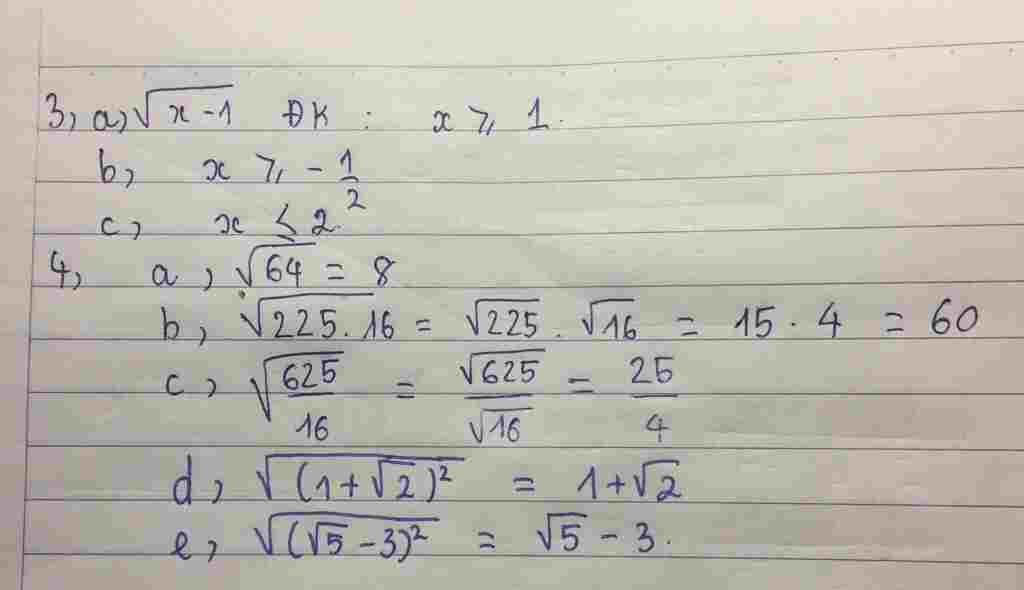 3, a, √(x-1) ĐK : x ≥ 1.
b, x ≥ -1/2
c, x ≤ 2.
4, a, √64 = 8
b, √(225.16) = √225 . √16 = 15 . 4 = 60
c, √(625/16) = √625/√16 = 25/4
d, √((1+√2)²) = 1+√2
e, √((√5-3)²) = √5 - 3.